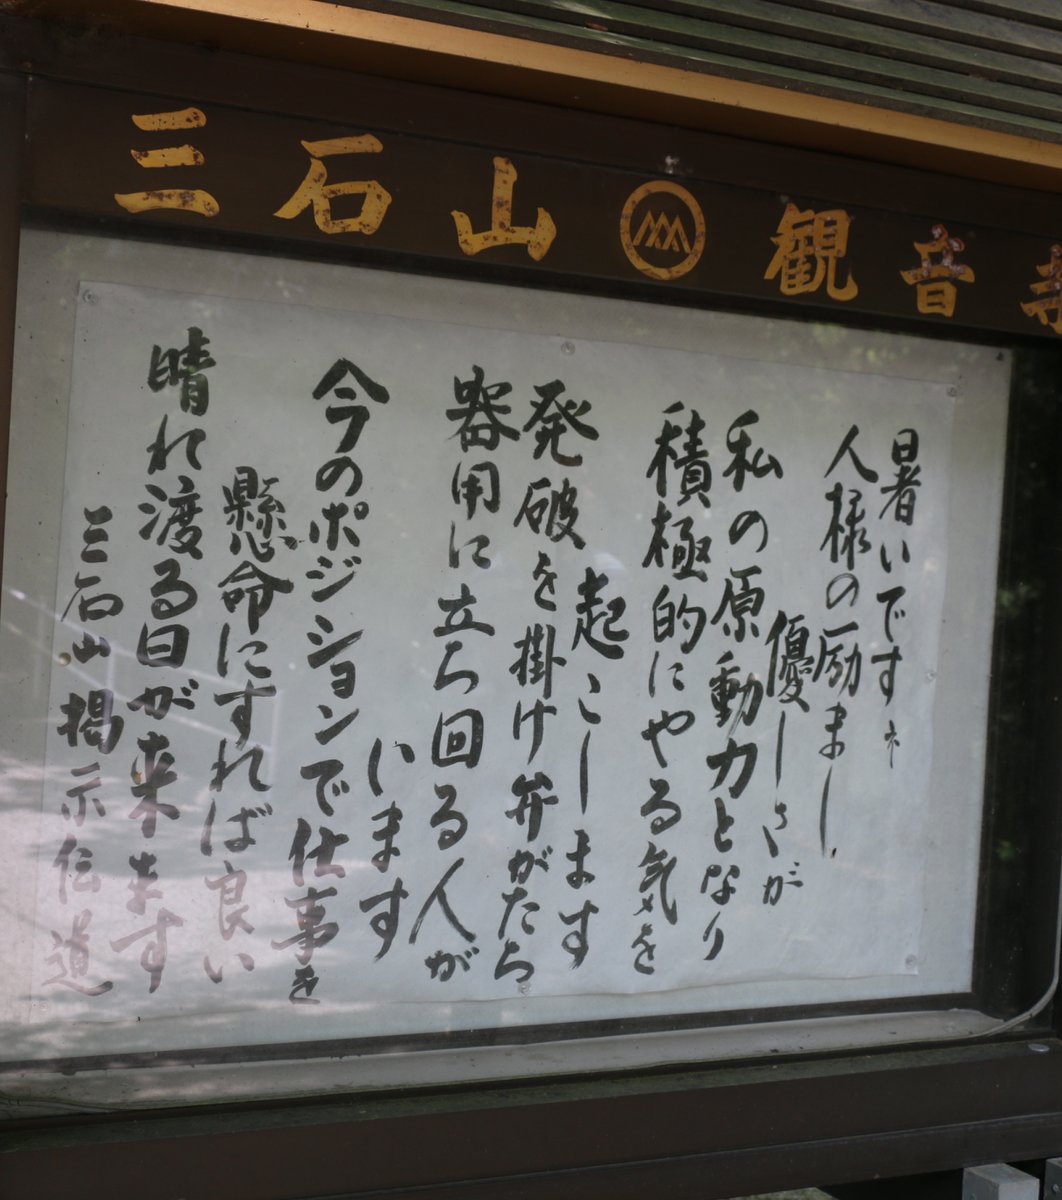 三石山 観音寺
暑いですネ
人様の励まし
優しさが
私の原動力となり
積極的にやる気を
起こします
発破を掛け弁がたち
器用に立ち回る人が
います
今のポジションで仕事を
懸命にすれば良い
晴れ渡る日が来ます
三石山掲示伝道